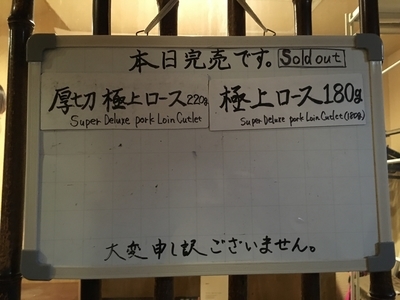 本日完売です。 Sold out
厚切 極上ロース220g
Super Deluxe pork Loin Cutlet
極上ロース180g
Super Deluxe pork Loin Cutlet (180g)
大変申し訳ございません。